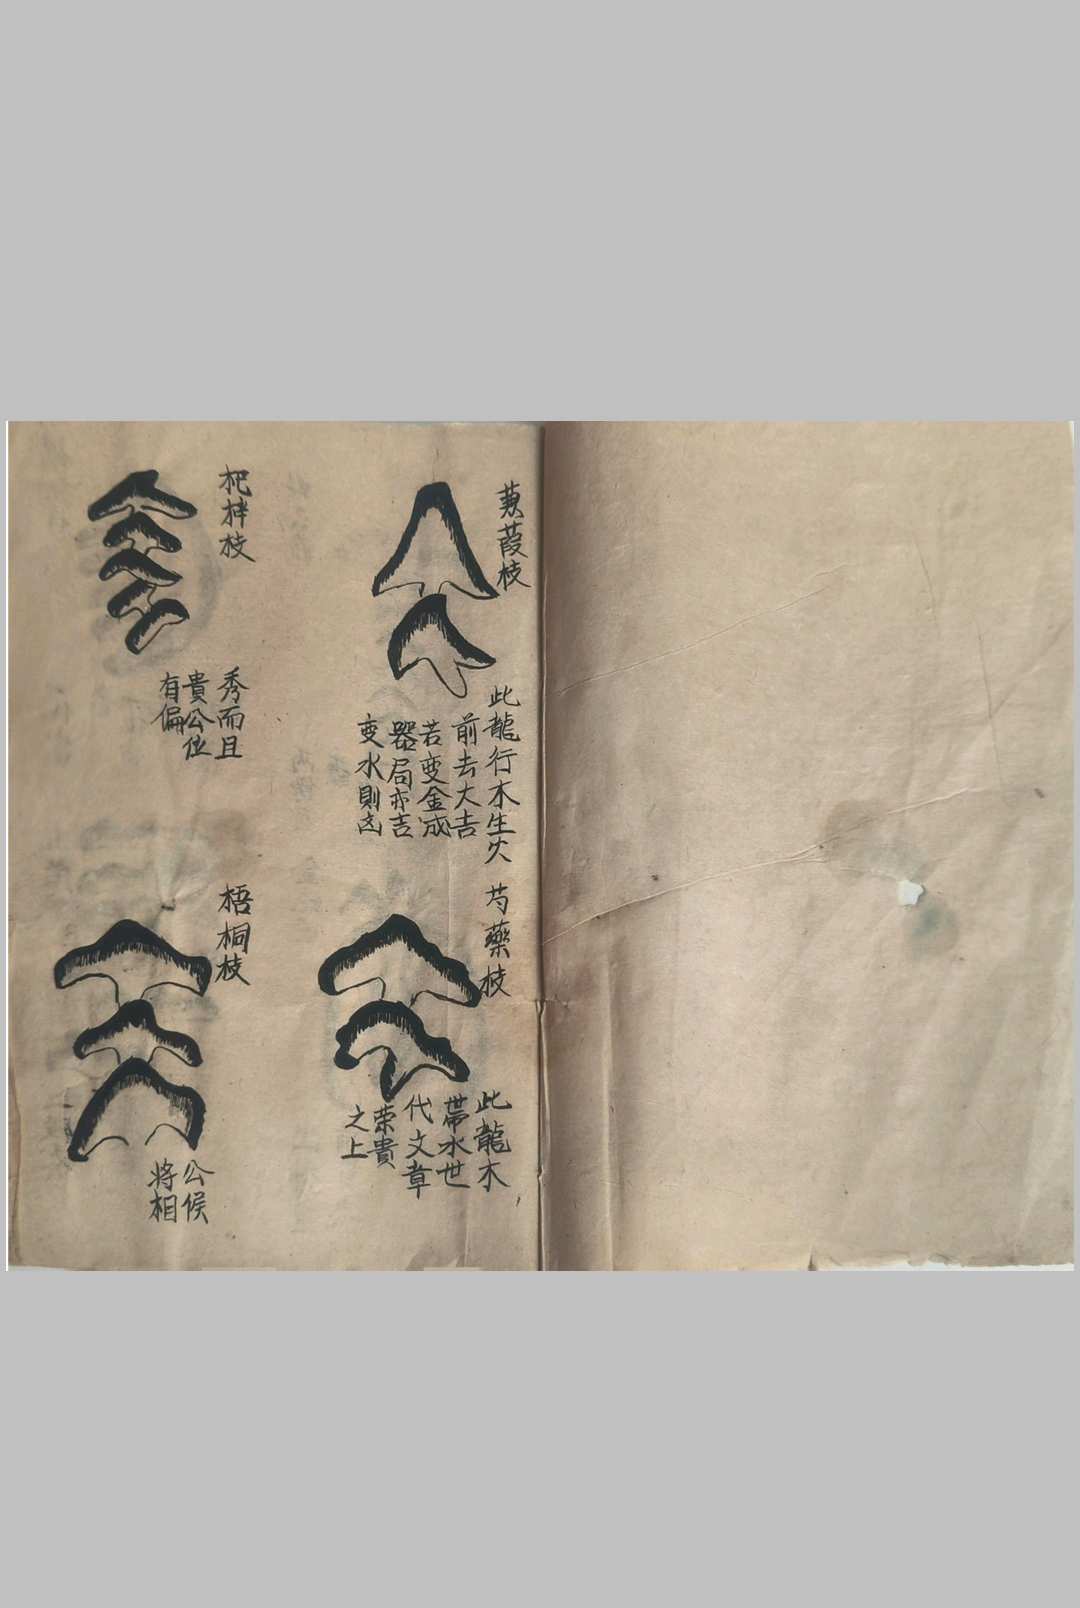 蒹葭枝
此龍行木生火
前去大吉
若变金成
器局亦吉
变水則凶
芍藥枝
此龍木
帶水世
代文章
荣貴
之上
杞梓枝
秀而且
貴公位
有偏
梧桐枝
公候
将相